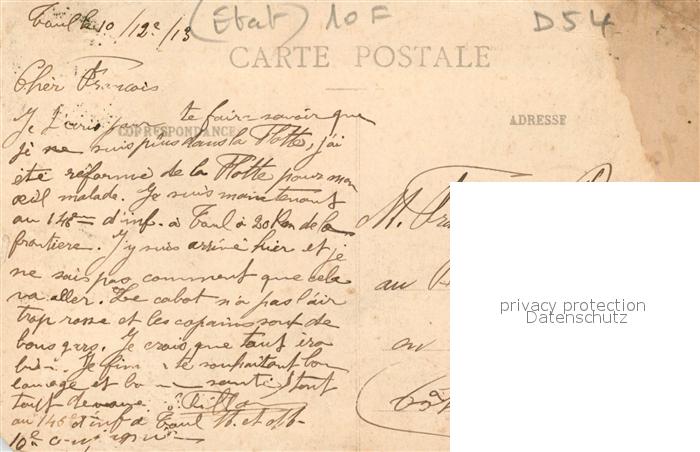 Toul le 10/12e/13
(Etat) 10F
D54
CARTE POSTALE
Cher Francois
CORRESPONDANCE
ADRESSE
Je t'ecris pour te faire savoir que
je ne suis plus dans la Flotte, j'ai
été réformé de la Flotte pour mon
œil malade. Je suis maintenant
au 146eme d'inf. à Toul à 20 Km de la
frontière. J'y suis arrivé hier et je
ne sais pas comment que cela
va aller. Le cabot n'a pas l'air
trop rosse et les copains sont de
bons gars. Je crois que tout ira
bien. Je finis te souhaitant bon
courage et bonne santé
tout
au 146e d'inf à Toul M. et M.
10e
M.
au
privacy protection
Datenschutz